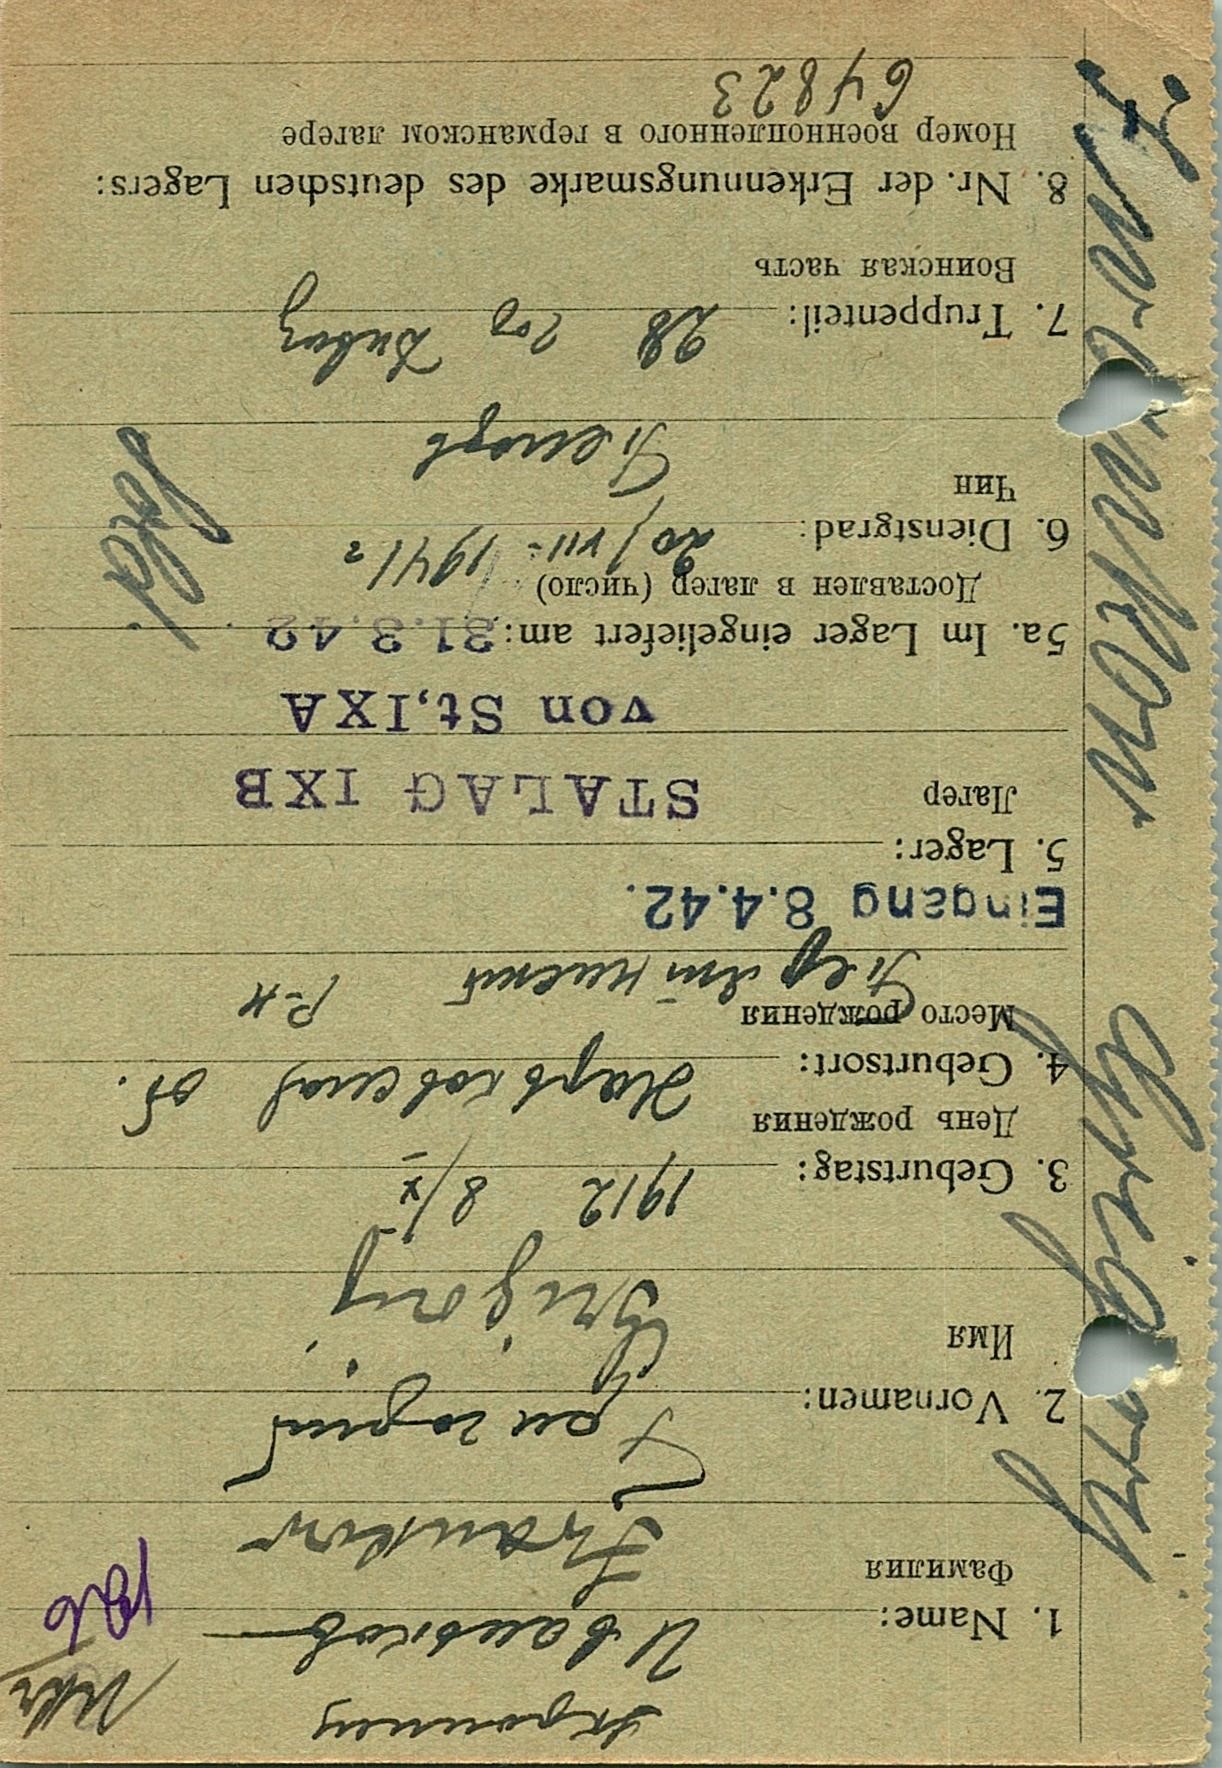 Украинец
Ukr
1. Name: Иваньков
Фамилия
Iwankow
2. Vornamen: Григорий
Имя
Grigorij
3. Geburtstag: 1912 8/X
День рождения
4. Geburtsort: Харьковская об.
Место рождения
р-н
Eingang 8.4.42.
5. Lager:
Лагер
STALAG IXB
von St, IXA
5a. Im Lager eingeliefert am: 31.3.42
Доставлен в лагер (число)
20/VII - 1941 г
6. Dienstgrad:
Чин
Sold.
7. Truppenteil: 28
Воинская часть
8. Nr. der Erkennungsmarke des deutschen Lagers:
Номер военнопленного в германском лагере
64823
Iwankow Grigorij